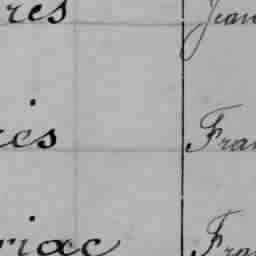 res Jean
ies Fran
riac Fran